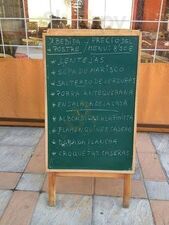 BEBIDA / PRECIO DEL
POSTRE / MENU: 8'50 €
* LENTEJAS
* SOPA DE MARISCO
* SALTEADO DE VERDURAS
* PORRA ANTEQUERANA
* ENSALADA DE LA CASA
* ALBONDIGAS
* FLAMENQUINES CASEROS
* PLANCHA
* CROQUETAS CASERAS